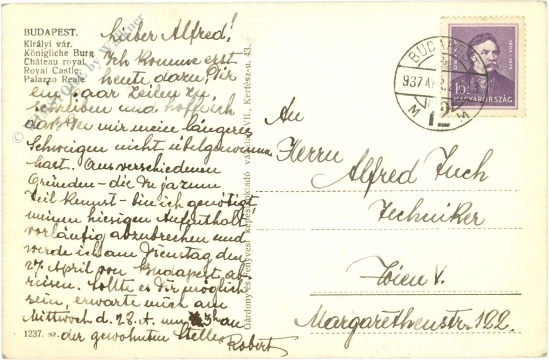 BUDAPEST.
Királyi vár.
Königliche Burg
Château royal
Royal Castle
Palazzo Reale
Lieber Alfred!
Ich komme erst
heute, dazu Dir
ein paar Zeilen zu
schreiben und hoffe ich
dass Du mir mein längeres
Schweigen nicht übelgenommen
hast. Aus verschiedenen
Gründen - die Du ja zum
Teil kennst - bin ich genötigt,
meinen hiesigen Aufenthalt
vorläufig abzubrechen und
werde ich am Dienstag den
27. April von Budapest ab-
reisen. Sollte es Dir möglich
sein, erwarte mich am
Mittwoch d. 28. d. um an
der gewohnten Stelle
Robert
1237. sz.
kiadó VII., Kertész-u. 43.
BUDAPEST
937
MAGYARORSZÁG
An
Herrn Alfred Fuch
Techniker
Wien V.
Margarethenstr. 122.